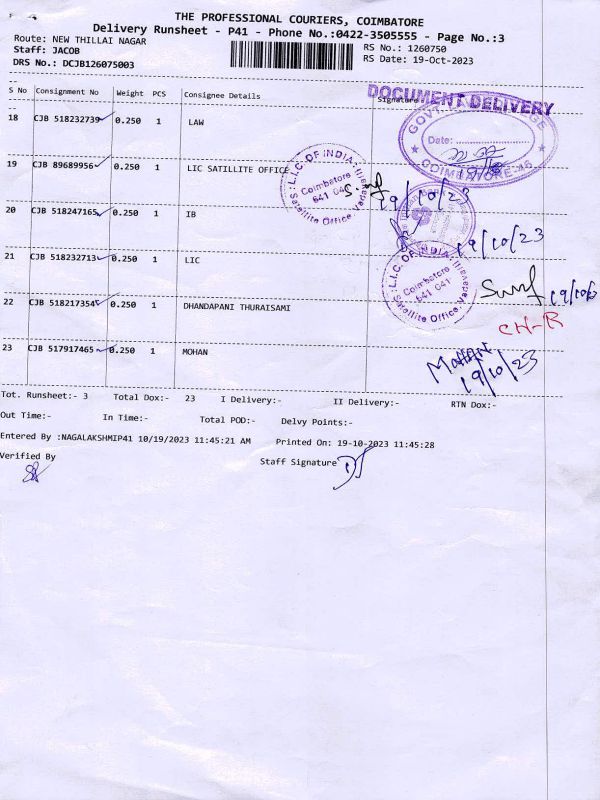 THE PROFESSIONAL COURIERS, COIMBATORE
Delivery Runsheet - P41 - Phone No.:0422-3505555 - Page No.:3
Route: NEW THILLAI NAGAR
RS No.: 1260750
Staff: JACOB
RS Date: 19-Oct-2023
DRS No.: DCJB126075003
S No Consignment No Weight PCS Consignee Details Signature
DOCUMENT DELIVERY
18 CJB 518232739 0.250 1 LAW
GOVT. LAW COLLEGE
Date:
COIMBATORE-46
19 CJB 89689956 0.250 1 LIC SATILLITE OFFICE
L.I.C. OF INDIA
Coimbatore
641 041
Satellite Office
19/10/23
20 CJB 518247165 0.250 1 IB
19/10/23
21 CJB 518232713 0.250 1 LIC
L.I.C. OF INDIA
Coimbatore
641 041
Satellite Office
19/10/23
22 CJB 518217354 0.250 1 DHANDAPANI THURAISAMI
CH-R
23 CJB 517917465 0.250 1 MOHAN
MOHAN
19/10/23
Tot. Runsheet:- 3 Total Dox:- 23 I Delivery:- II Delivery:- RTN Dox:-
Out Time:- In Time:- Total POD:- Delvy Points:-
Entered By :NAGALAKSHMIP41 10/19/2023 11:45:21 AM Printed On: 19-10-2023 11:45:28
Verified By
Staff Signature